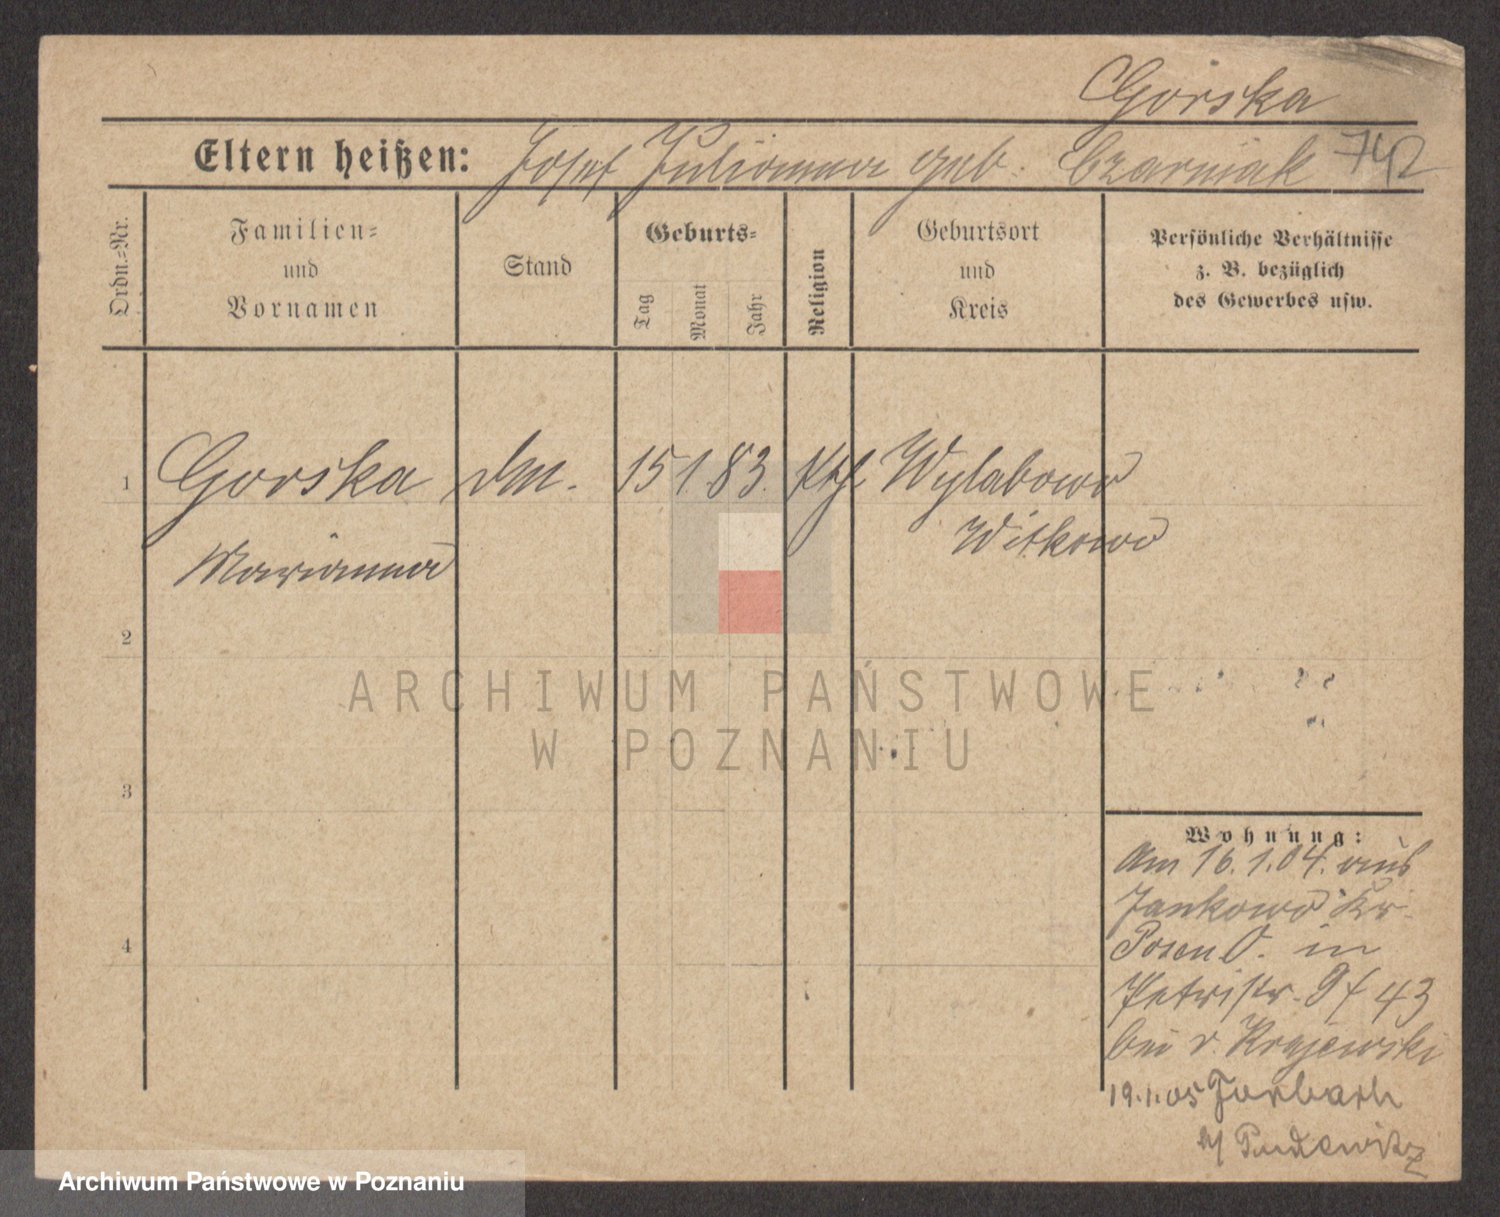 Gorska
Eltern heißen: Josef Julianna geb. Czarniak 742
Ordn.-Nr.
Familien-
und
Vornamen
Stand
Geburts-
Tag
Monat
Jahr
Religion
Geburtsort
und
Kreis
Persönliche Verhältnisse
z. B. bezüglich
des Gewerbes usw.
1 Gorska 15 1. 83. kth. Wylabowo
Witkowo
Marianna
2
ARCHIWUM PAŃSTWOWE
W POZNANIU
3
Wohnung:
Am 16.1.04. aus
Jankowo Kr.
Posen O. in
Petristr. 9 f 43
bei v. Krajewski
4
19.1.05 Forbach
b/ Pudewitz
Archiwum Państwowe w Poznaniu